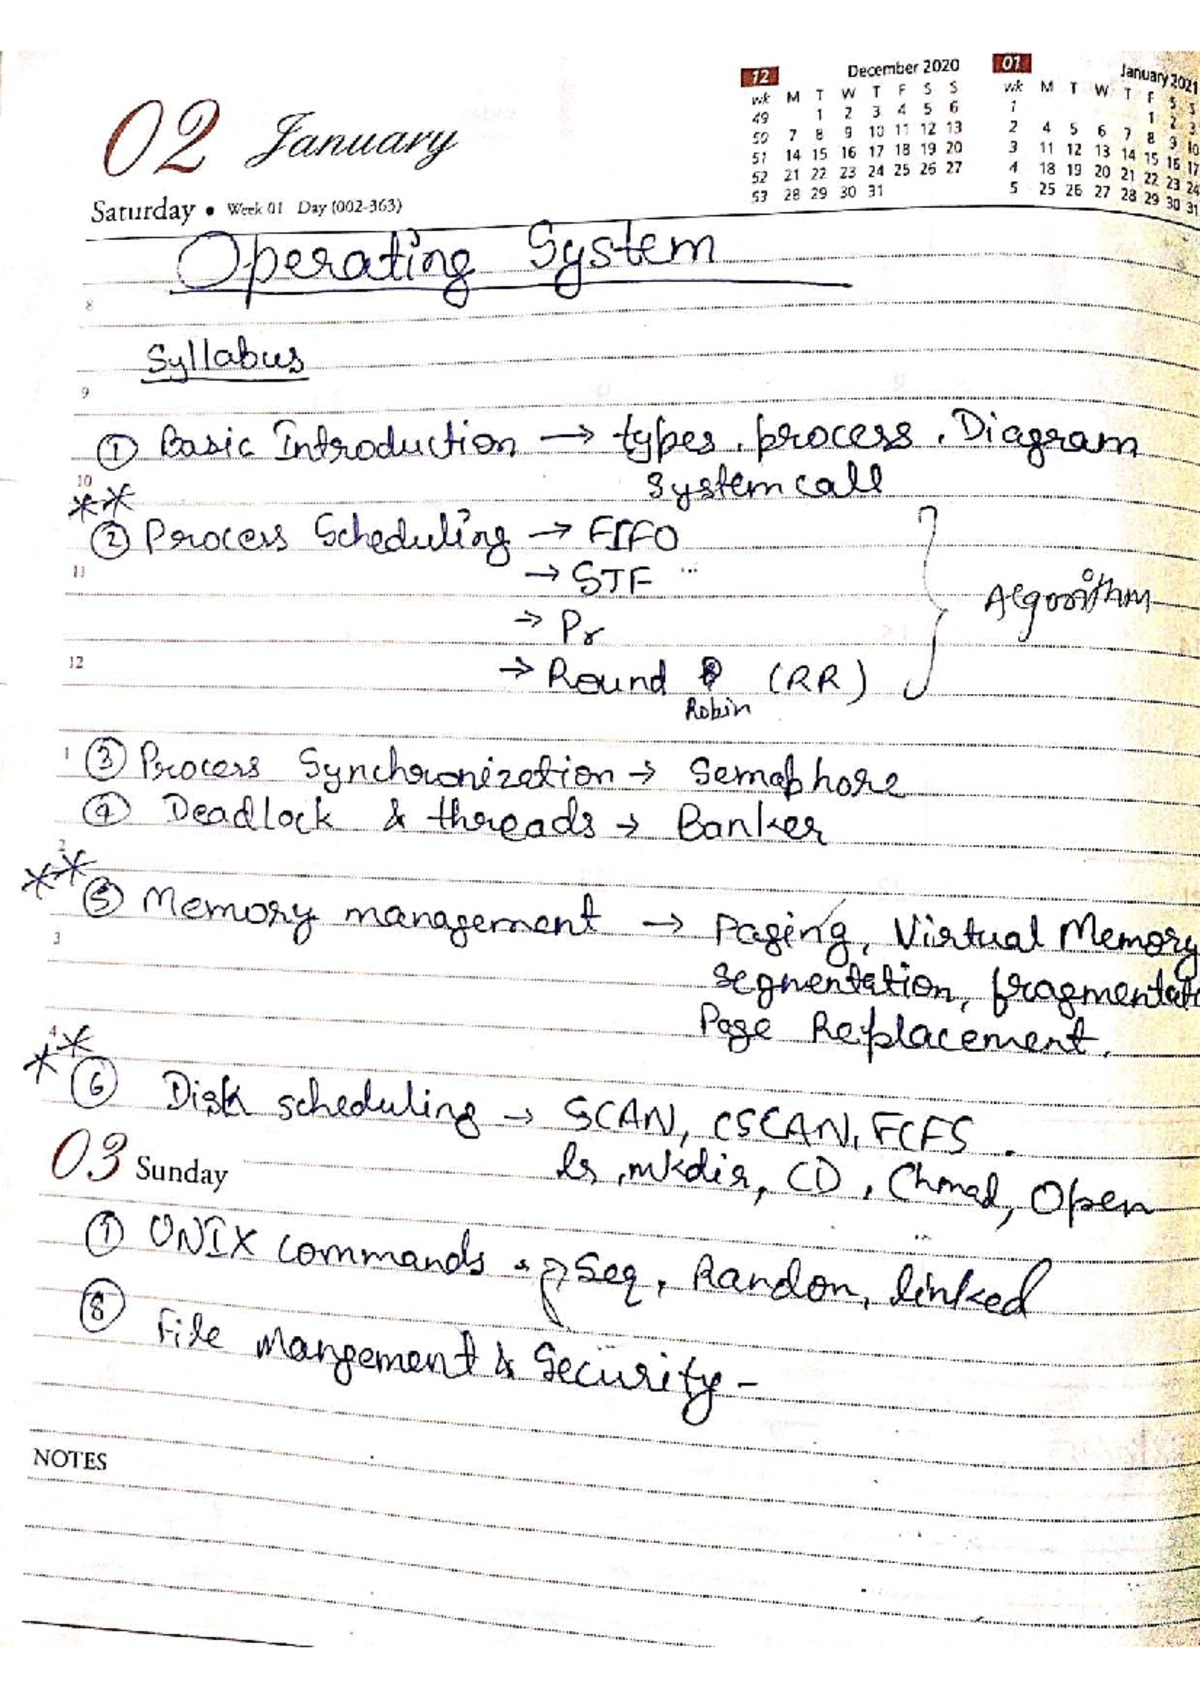 02 January
Saturday • Week 01 Day (002-363)
12 December 2020
wk M T W T F S S
49 1 2 3 4 5 6
50 7 8 9 10 11 12 13
51 14 15 16 17 18 19 20
52 21 22 23 24 25 26 27
53 28 29 30 31
01 January 2021
wk M T W T F S S
1 1 2 3
2 4 5 6 7 8 9 10
3 11 12 13 14 15 16 17
4 18 19 20 21 22 23 24
5 25 26 27 28 29 30 31
Operating System
8
Syllabus
9
① Basic Introduction → types, process, Diagram
10 System call
** ② Process Scheduling → FIFO
11 → STF
→ Pr
12 → Round (RR)
Robin
Algorithm
1 ③ Process Synchronization → Semaphore
④ Deadlock & threads → Banker
2
** ⑤ Memory management → Paging, Virtual Memory
3 segmentation, fragmentati
Page Replacement.
4
** ⑥ Disk scheduling → SCAN, CSCAN, FCFS.
03 Sunday
ls, mkdir, CD, Chmod, Open
⑦ UNIX commands
Seq, Random, linked
⑧ File Mangement & Security -
NOTES